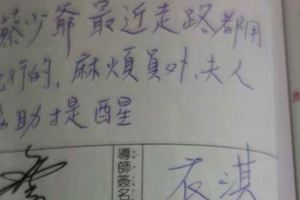 蔡少爺最近走路都用
行的,麻煩員外、夫人
助提醒
導師簽名
衣淇